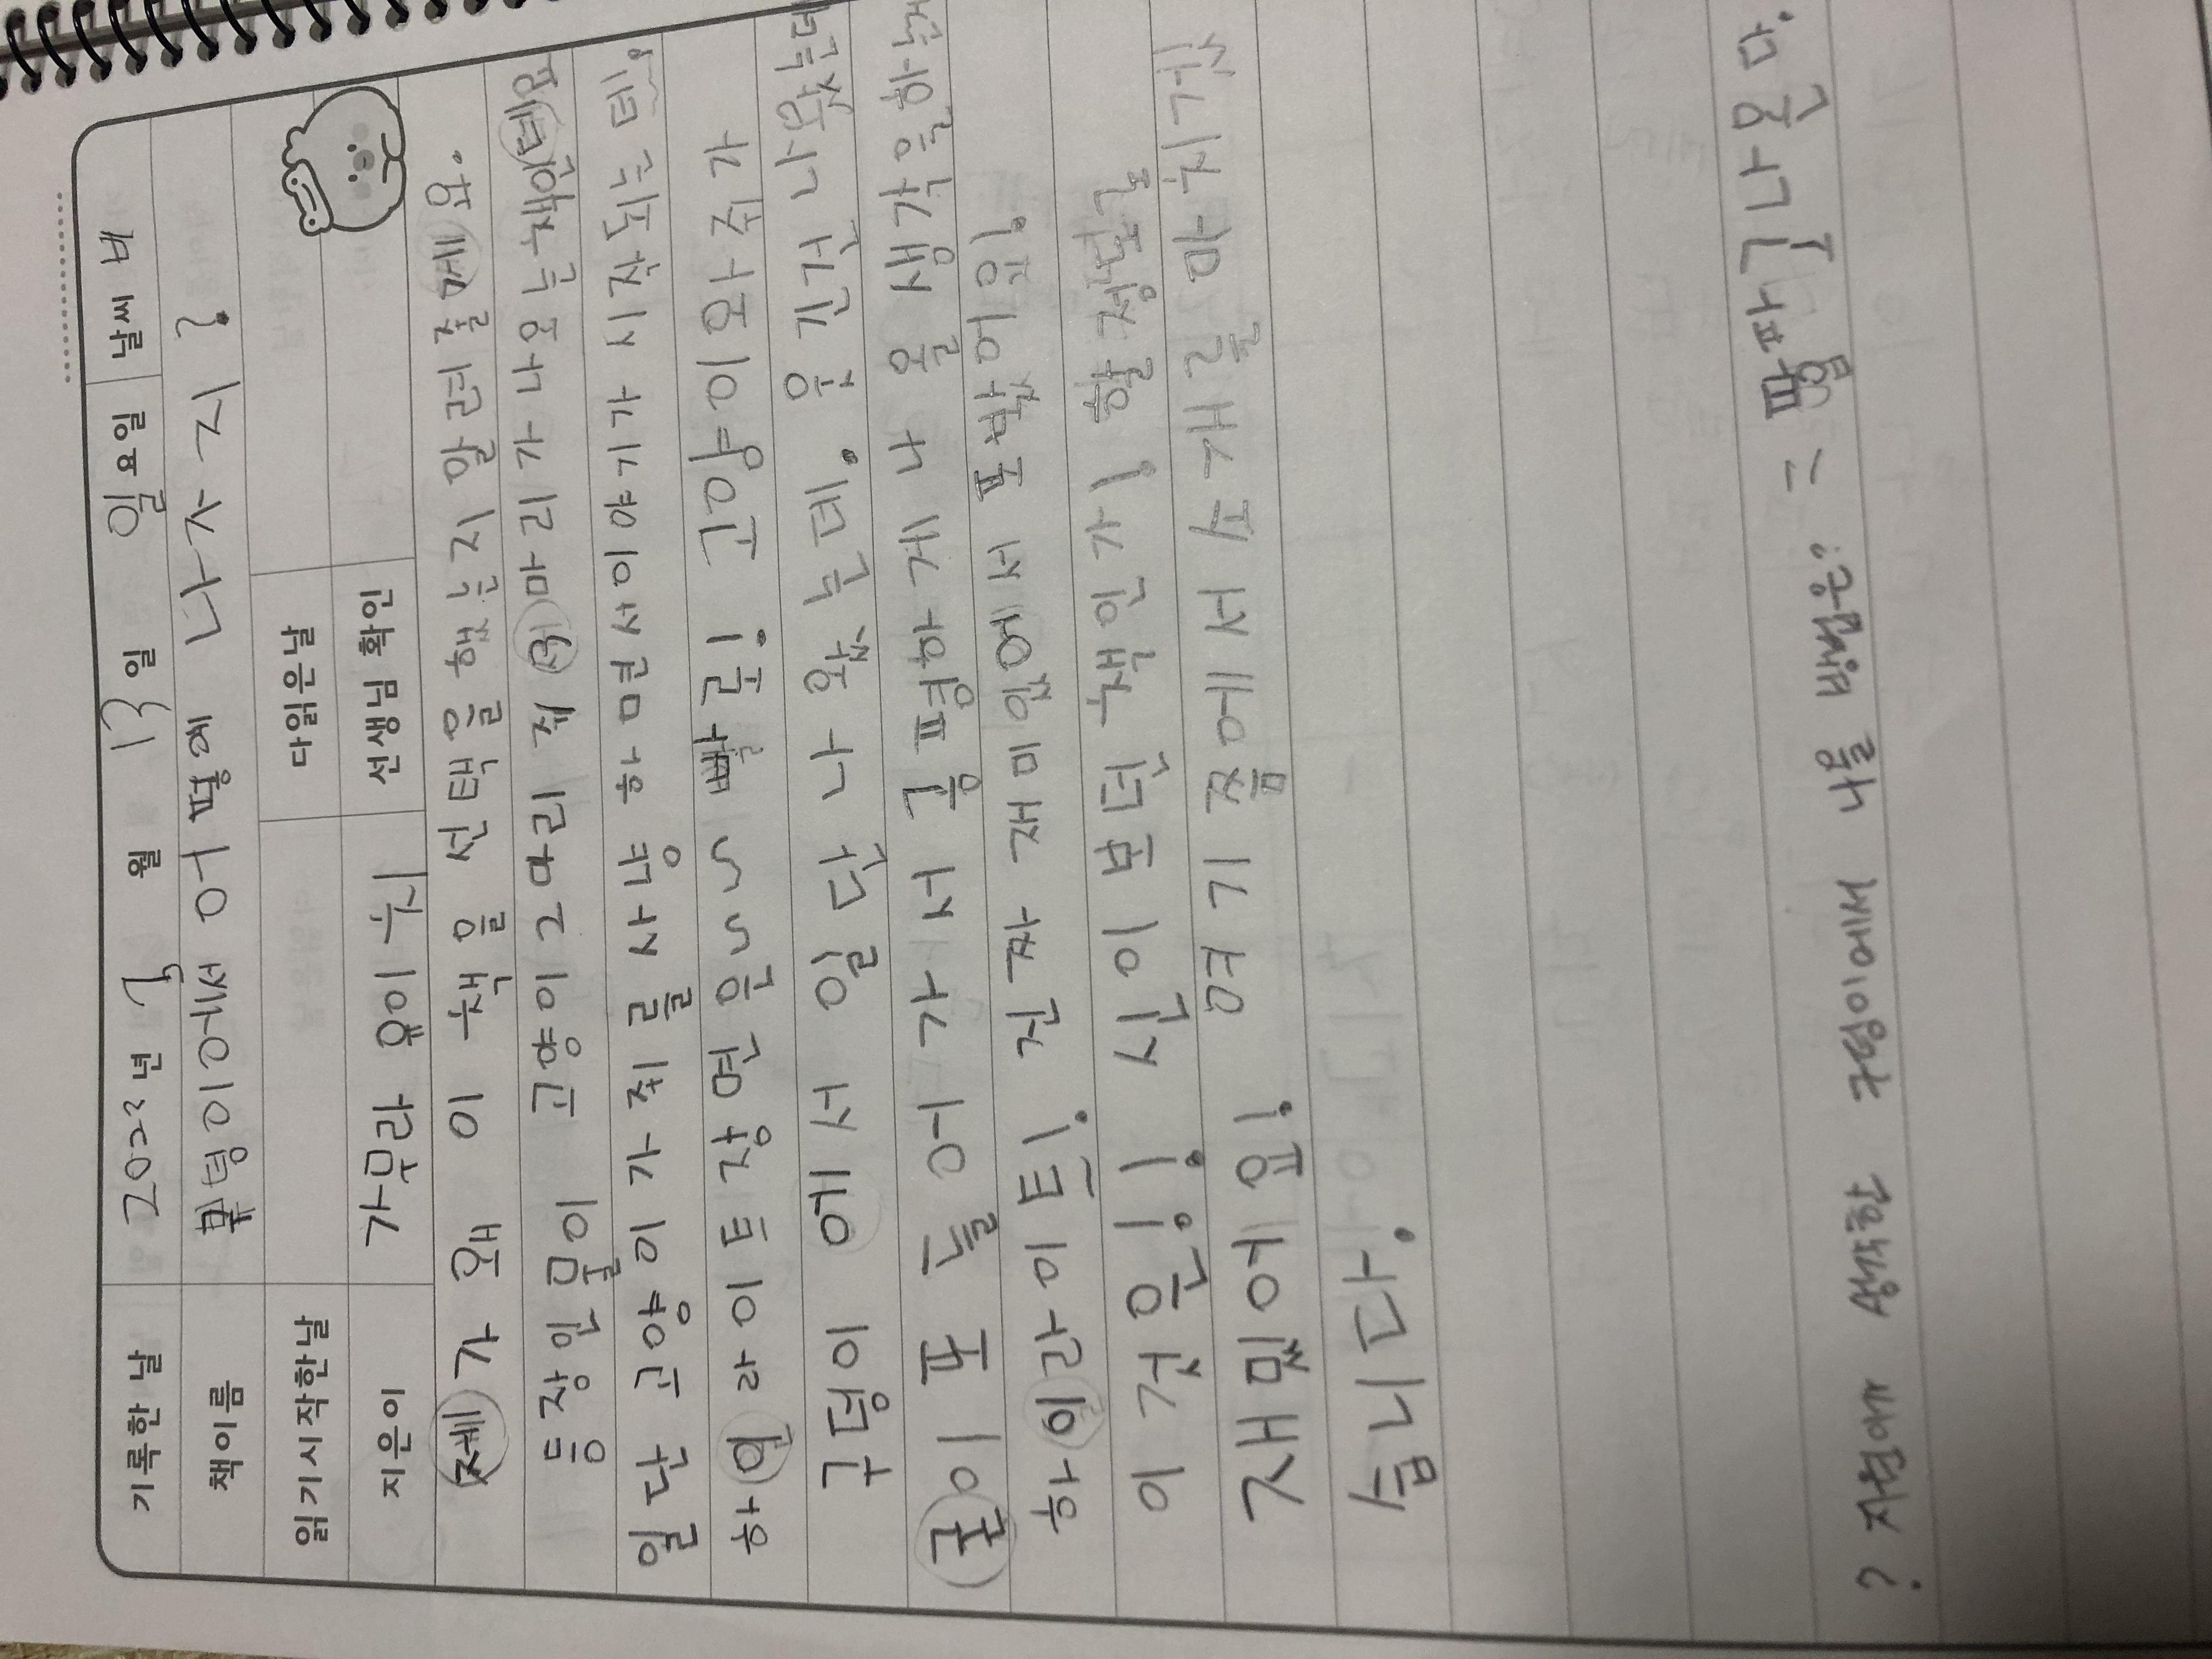 기록한 날 2023년 3월 13일 일요일 날씨 비
책이름 구덩이에서 어떻게 나가지?
읽기시작한날 다읽은날
지은이 가무라 유이치 선생님 확인
제가 왜 이 책을 선택을 했는지 알려줄게요.
등장인물이 고양이 2마리 쥐 3마리가 나오는 책인데요
일단 고양이가 쥐를 사냥 하면서 이야기가 시작되는데!
하일라이트 장면은~~ 빠로! 고양이와 쥐가
구덩이 에서 일단 나왔는데. 웃긴건 나왔는데
굳이 또 들어가서 공평하게 나올 생각을하는게
하일라이트! 진짜 재미있어서 또봤어요!
이것은!! 신이 보던 책인가! 할 정도로
재밌어요! 여기 쯤에서 소개를 마치겠
습니다.
= 땅파고나온다.
? 자원이가 생각한 구덩이에서 나올 방법은?